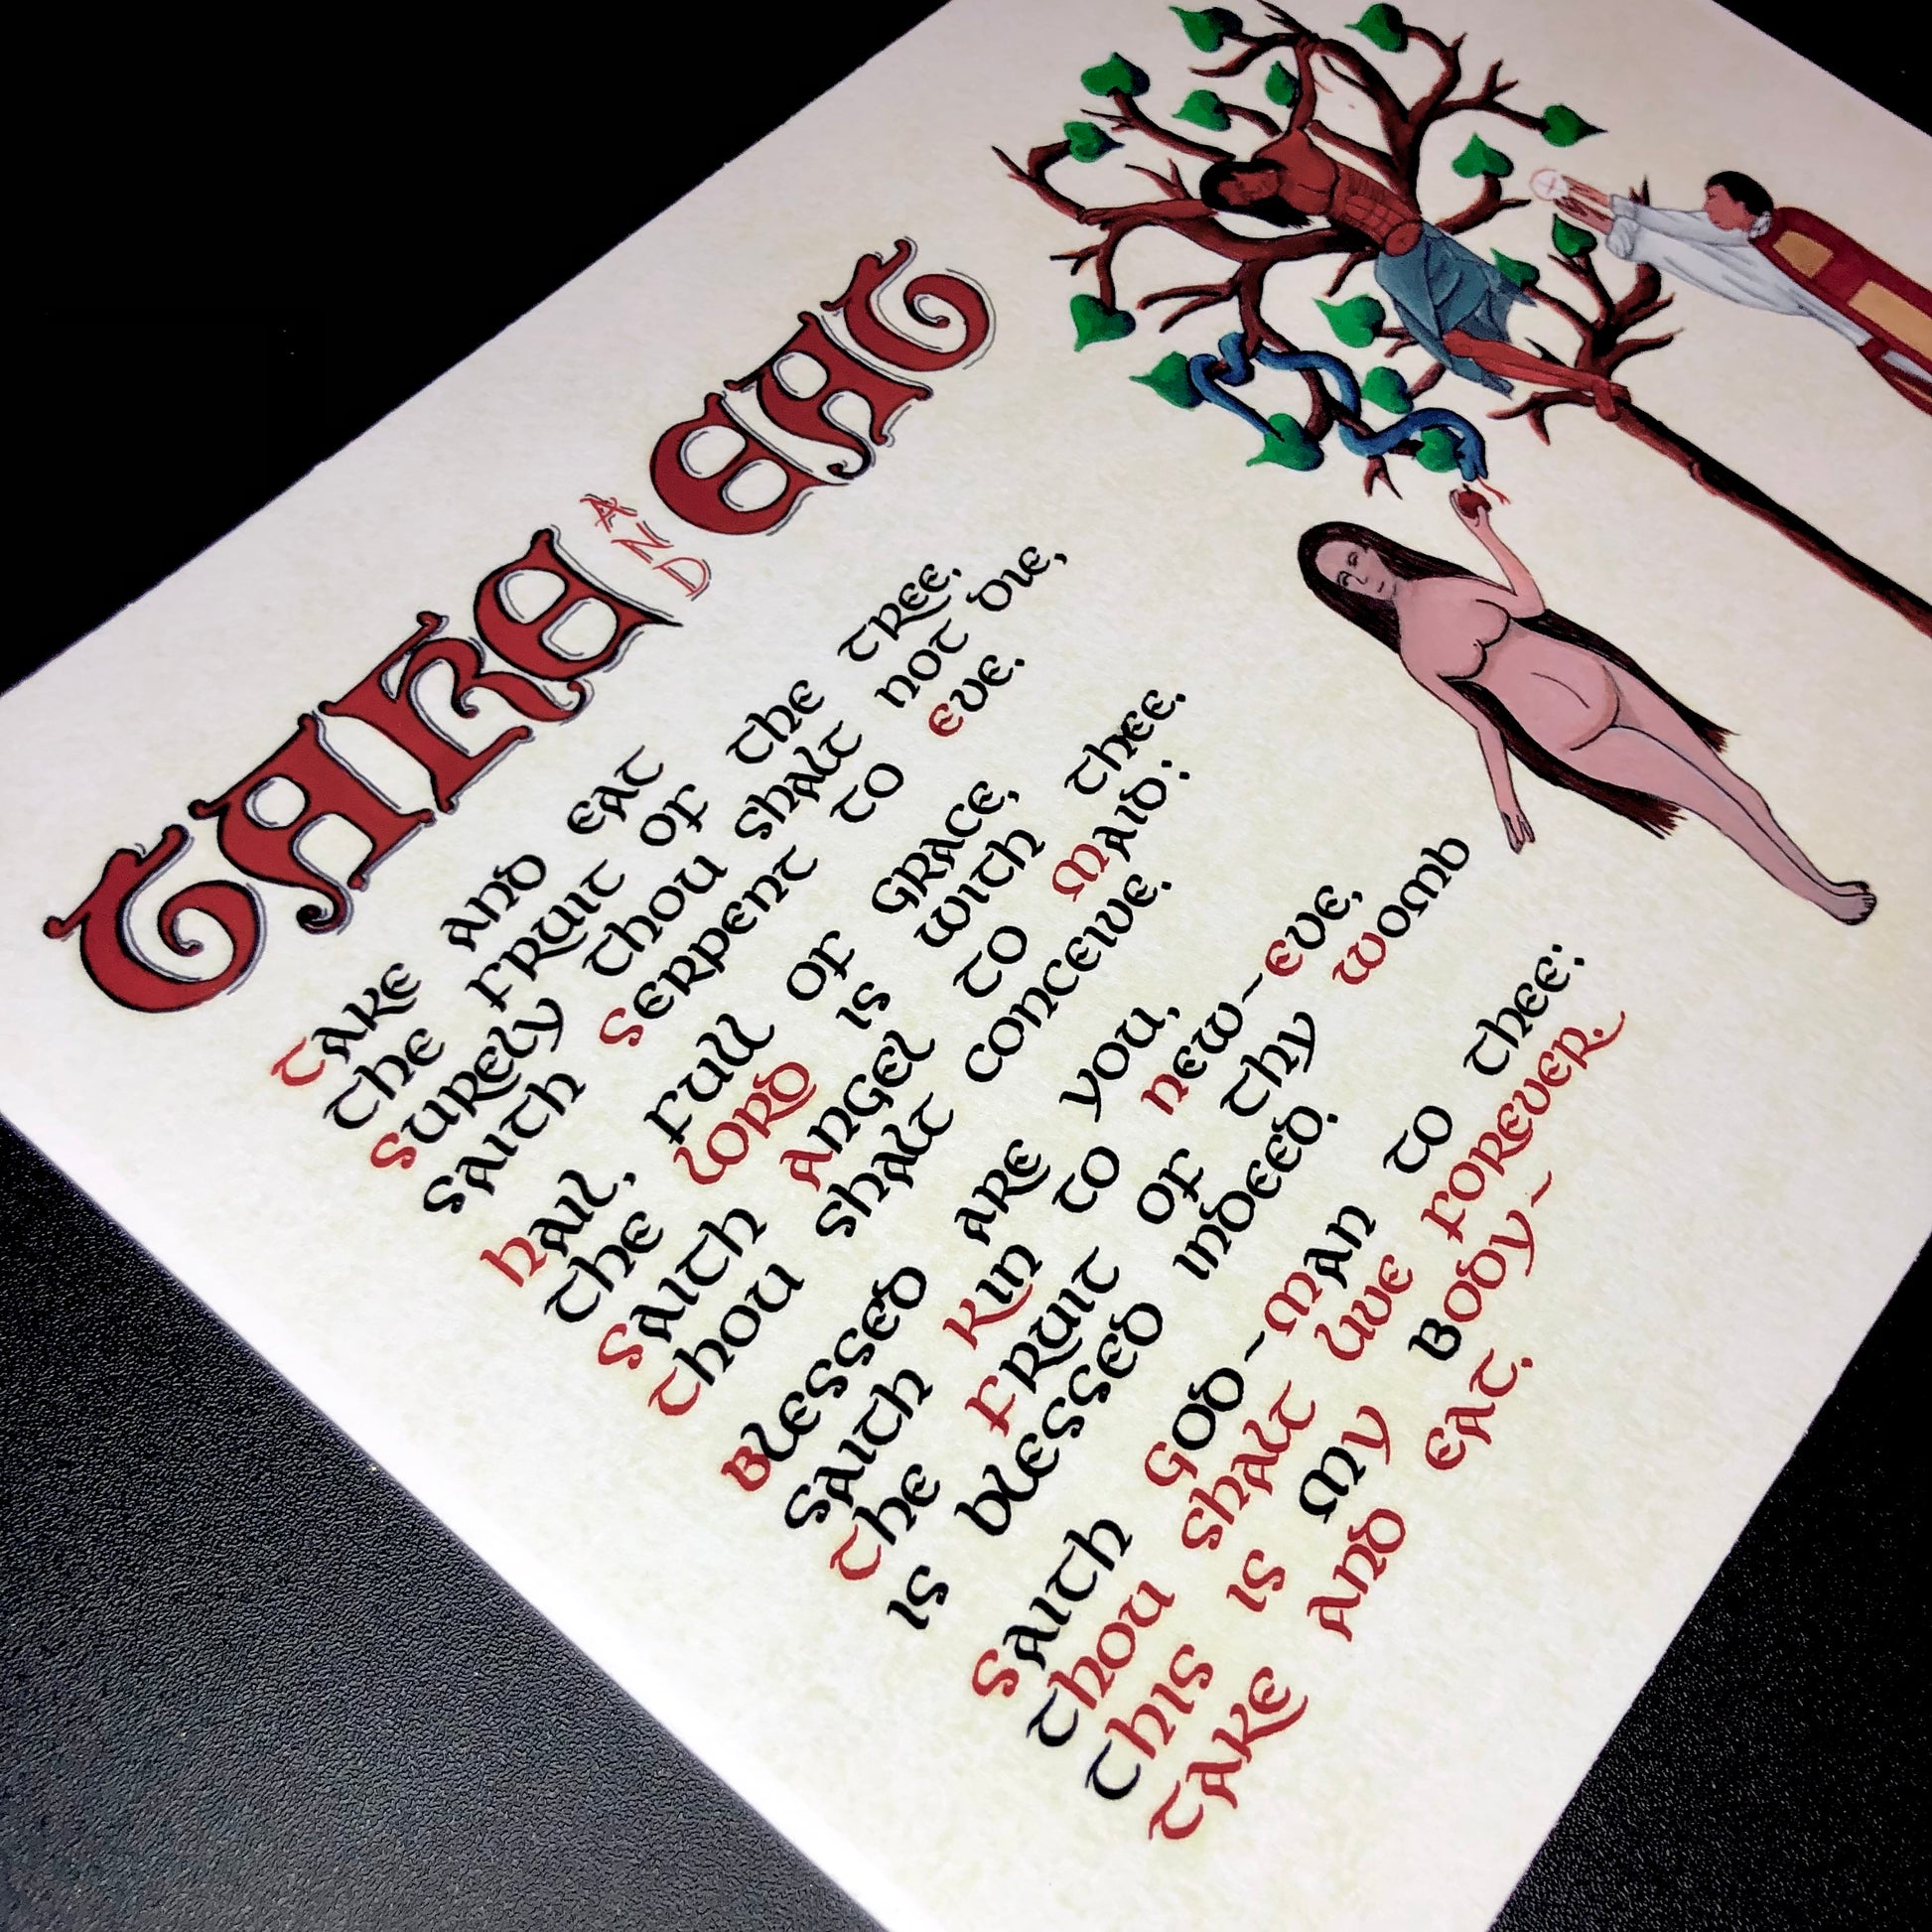 TAKE AND EAT
Take and eat
the fruit of the tree.
Surely thou shalt not die,
saith Serpent to Eve.
Hail, full of grace,
the Lord is with thee.
Saith Angel to Maid:
Thou shalt conceive.
Blessed are you,
saith Kin to New-Eve,
The Fruit of thy Womb
is blessed indeed.
Saith God-Man to thee:
Thou shalt live forever.
This is my Body-
Take and eat.